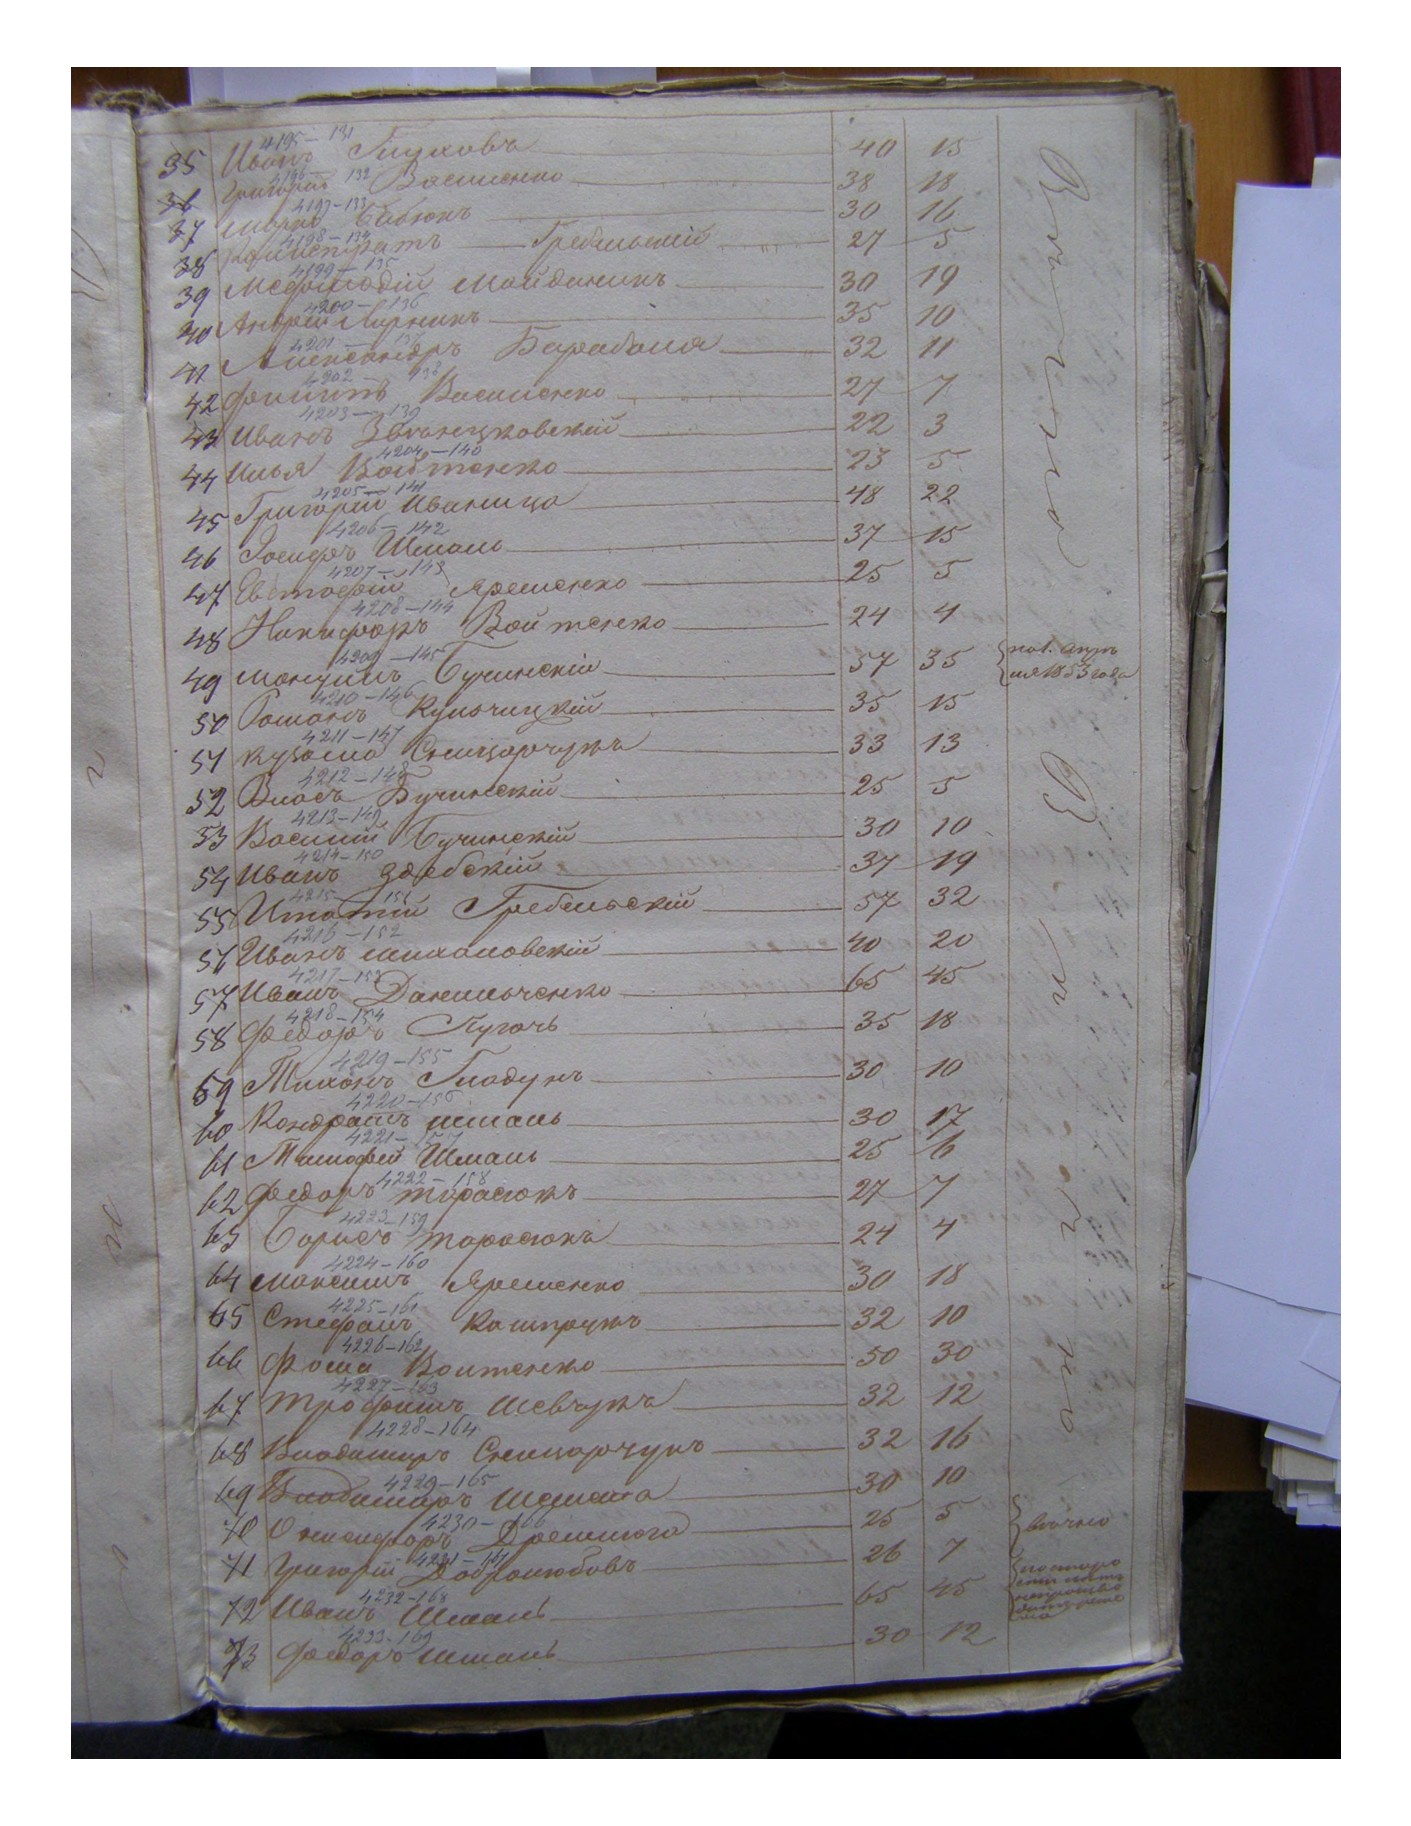 4195 – 131
35 Иванъ Глуховъ 40 15
4196 – 132
36 Григорій Василенко 38 18
4197 – 133
37 Марко Бабюкъ 30 16
4198 – 134
38 Калистратъ Гребельскій 27 5
4199 – 135
39 Мефтодій Майданикъ 30 19
4200 – 136
40 Андрей Лирникъ 35 10
4201
41 Александръ Барабаля 32 11
4202 138
42 Филипъ Василенко 27 7
4203 – 139
43 Иванъ Званцковскій 22 3
4204 – 140
44 Илья Войтенко 23 5
4205 – 141
45 Григорій Иваница 48 22
4206 – 142
46 Іосифъ Шмаль 37 15
4207 – 143
47 Евстафій Яременко 25 5
4208 – 144
48 Никифоръ Войтенко 24 4
4209 – 145
49 Мануилъ Бучинскій 57 35
4210 – 146
50 Романъ Кульчицкій 35 15
4211 – 147
51 Кузьма Сницарчукъ 33 13
4212 – 148
52 Власъ Бучинскій 25 5
4213 – 149
53 Василій Бучинскій 30 10
4214 – 150
54 Иванъ Здебскій 37 19
4215 151
55 Игнатій Гребельскій 57 32
4216 – 152
56 Иванъ Михаловскій 40 20
4217 – 153
57 Иванъ Данильченко 65 45
4218 – 154
58 Федоръ Пугачъ 35 18
4219 – 155
59 Тихонъ Гладунъ 30 10
4220 – 156
60 Кондратъ Шмаль 30 17
4221 – 157
61 Тимофей Шмаль 25 6
4222 – 158
62 Федоръ Тарасюкъ 27 7
4223 – 159
63 Борисъ Тарасюкъ 24 4
4224 – 160
64 Максимъ Яременко 30 18
4225 – 161
65 Стефанъ Кашпрукъ 32 10
4226 – 162
66 Фома Войтенко 50 30
4227 – 163
67 Трофимъ Шевчукъ 32 12
4228 – 164
68 Владимиръ Сницарчукъ 32 16
4229 – 165
69 Владимиръ 30 10
4230 – 166
70 Онисифоръ Дремлюга 25 5
4231 – 167
71 Григорій Добролюбовъ 26 7
4232 – 168
72 Иванъ Шмаль 65 45
4233 – 169
73 Федоръ Шмаль 30 12
1853 года